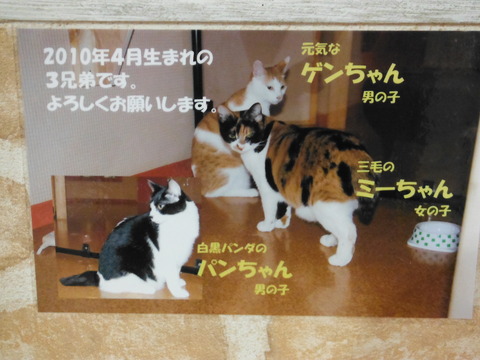 2010年4月生まれの
3兄弟です。
よろしくお願いします。
元気な
ゲンちゃん
男の子
三毛の
ミーちゃん
女の子
白黒パンダの
パンちゃん
男の子